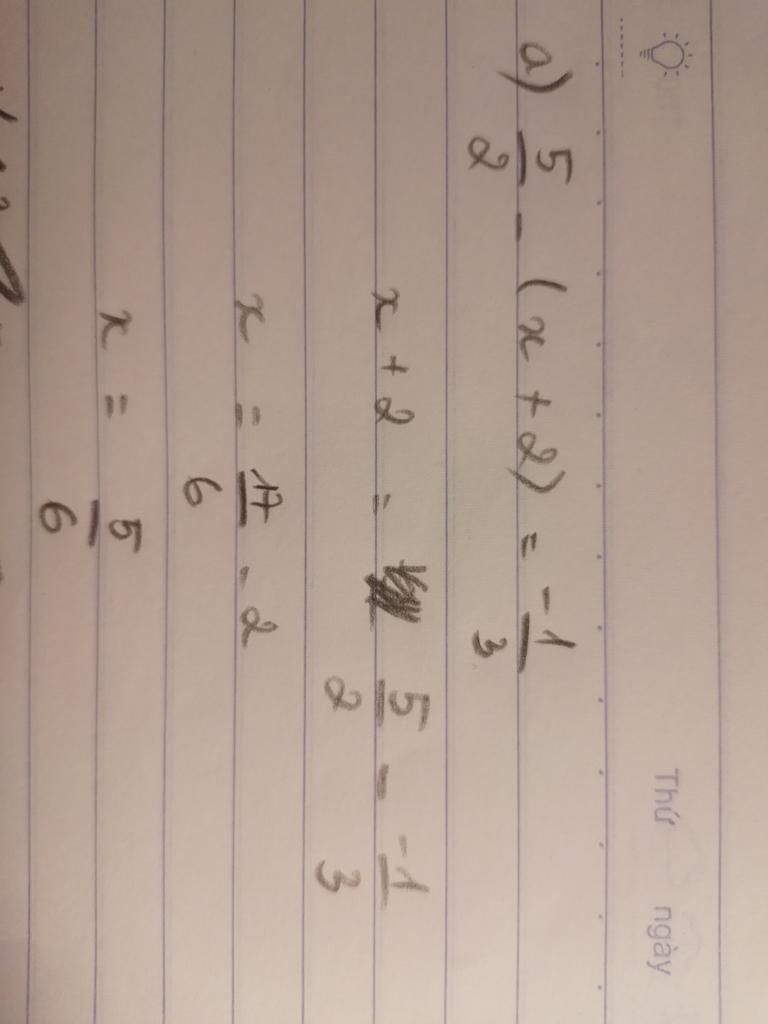 Thứ ngày
a) 5/2 - (x + 2) = -1/3
x + 2 = 5/2 - -1/3
x = 17/6 - 2
x = 5/6